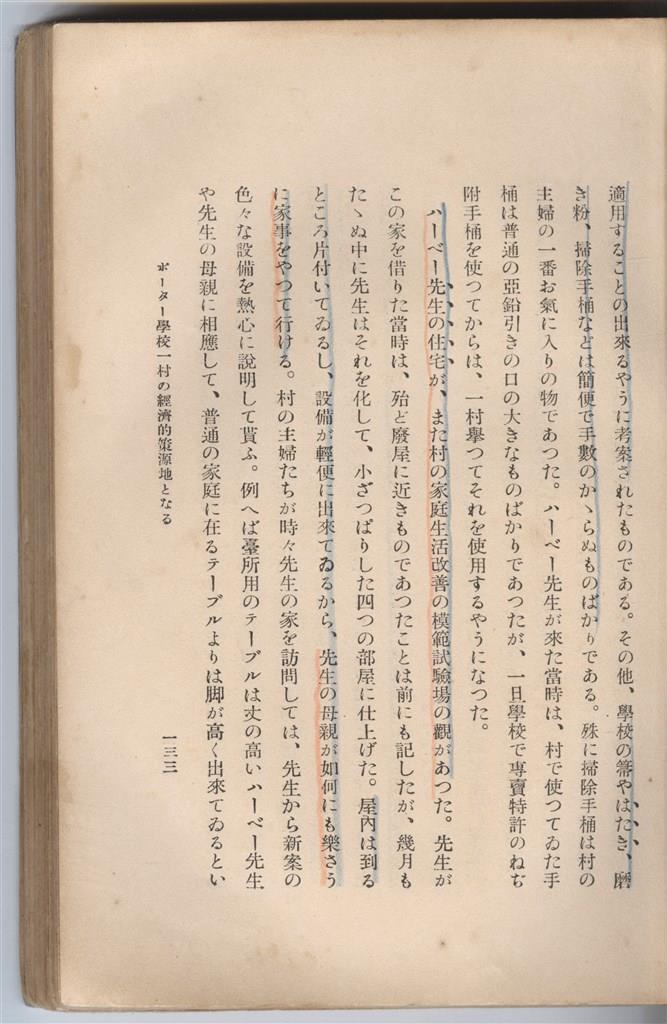 適用することの出來るやうに考案されたものである。その他、學校の箒やはたき、磨
き粉、掃除手桶などは簡便で手數のかゝらぬものばかりである。殊に掃除手桶は村の
主婦の一番お氣に入りの物であつた。ハーベー先生が來た當時は、村で使つてゐた手
桶は普通の亞鉛引きの口の大きなものばかりであつたが、一旦學校で專賣特許のねぢ
附手桶を使つてからは、一村擧つてそれを使用するやうになつた。
ハーベー先生の住宅が、また村の家庭生活改善の模範試驗場の觀があつた。先生が
この家を借りた當時は、殆ど廢屋に近きものであつたことは前にも記したが、幾月も
たゝぬ中に先生はそれを化して、小ざつぱりした四つの部屋に仕上げた。屋內は到る
ところ片付いてゐるし、設備が輕便に出來てゐるから、先生の母親が如何にも樂さう
に家事をやつて行ける。村の主婦たちが時々先生の家を訪問しては、先生から新案の
色々な設備を熱心に說明して貰ふ。例へば臺所用のテーブルは丈の高いハーベー先生
や先生の母親に相應して、普通の家庭に在るテーブルよりは脚が高く出來てゐるとい
ポーター學校一村の經濟的策源地となる
一三三